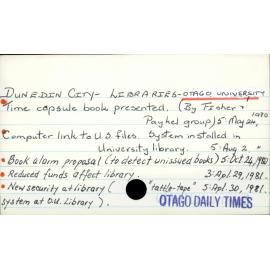 DUNEDIN CITY- LIBRARIES-OTAGO UNIVERSITY
Time capsule book presented. (By Fisher &
1980
Paykel group) 5 May 24,
Computer link to U.S. files. System installed in
University library. 5. Aug. 2, "
Book alarm proposal (to detect unissued books) 5. Oct 24, 1980
Reduced funds affect library. 3. Apl. 29, 1981.
New security at library ( "tattle-tape" 5. Apl. 30, 1981.
system at O.U. Library ).
OTAGO DAILY TIMES